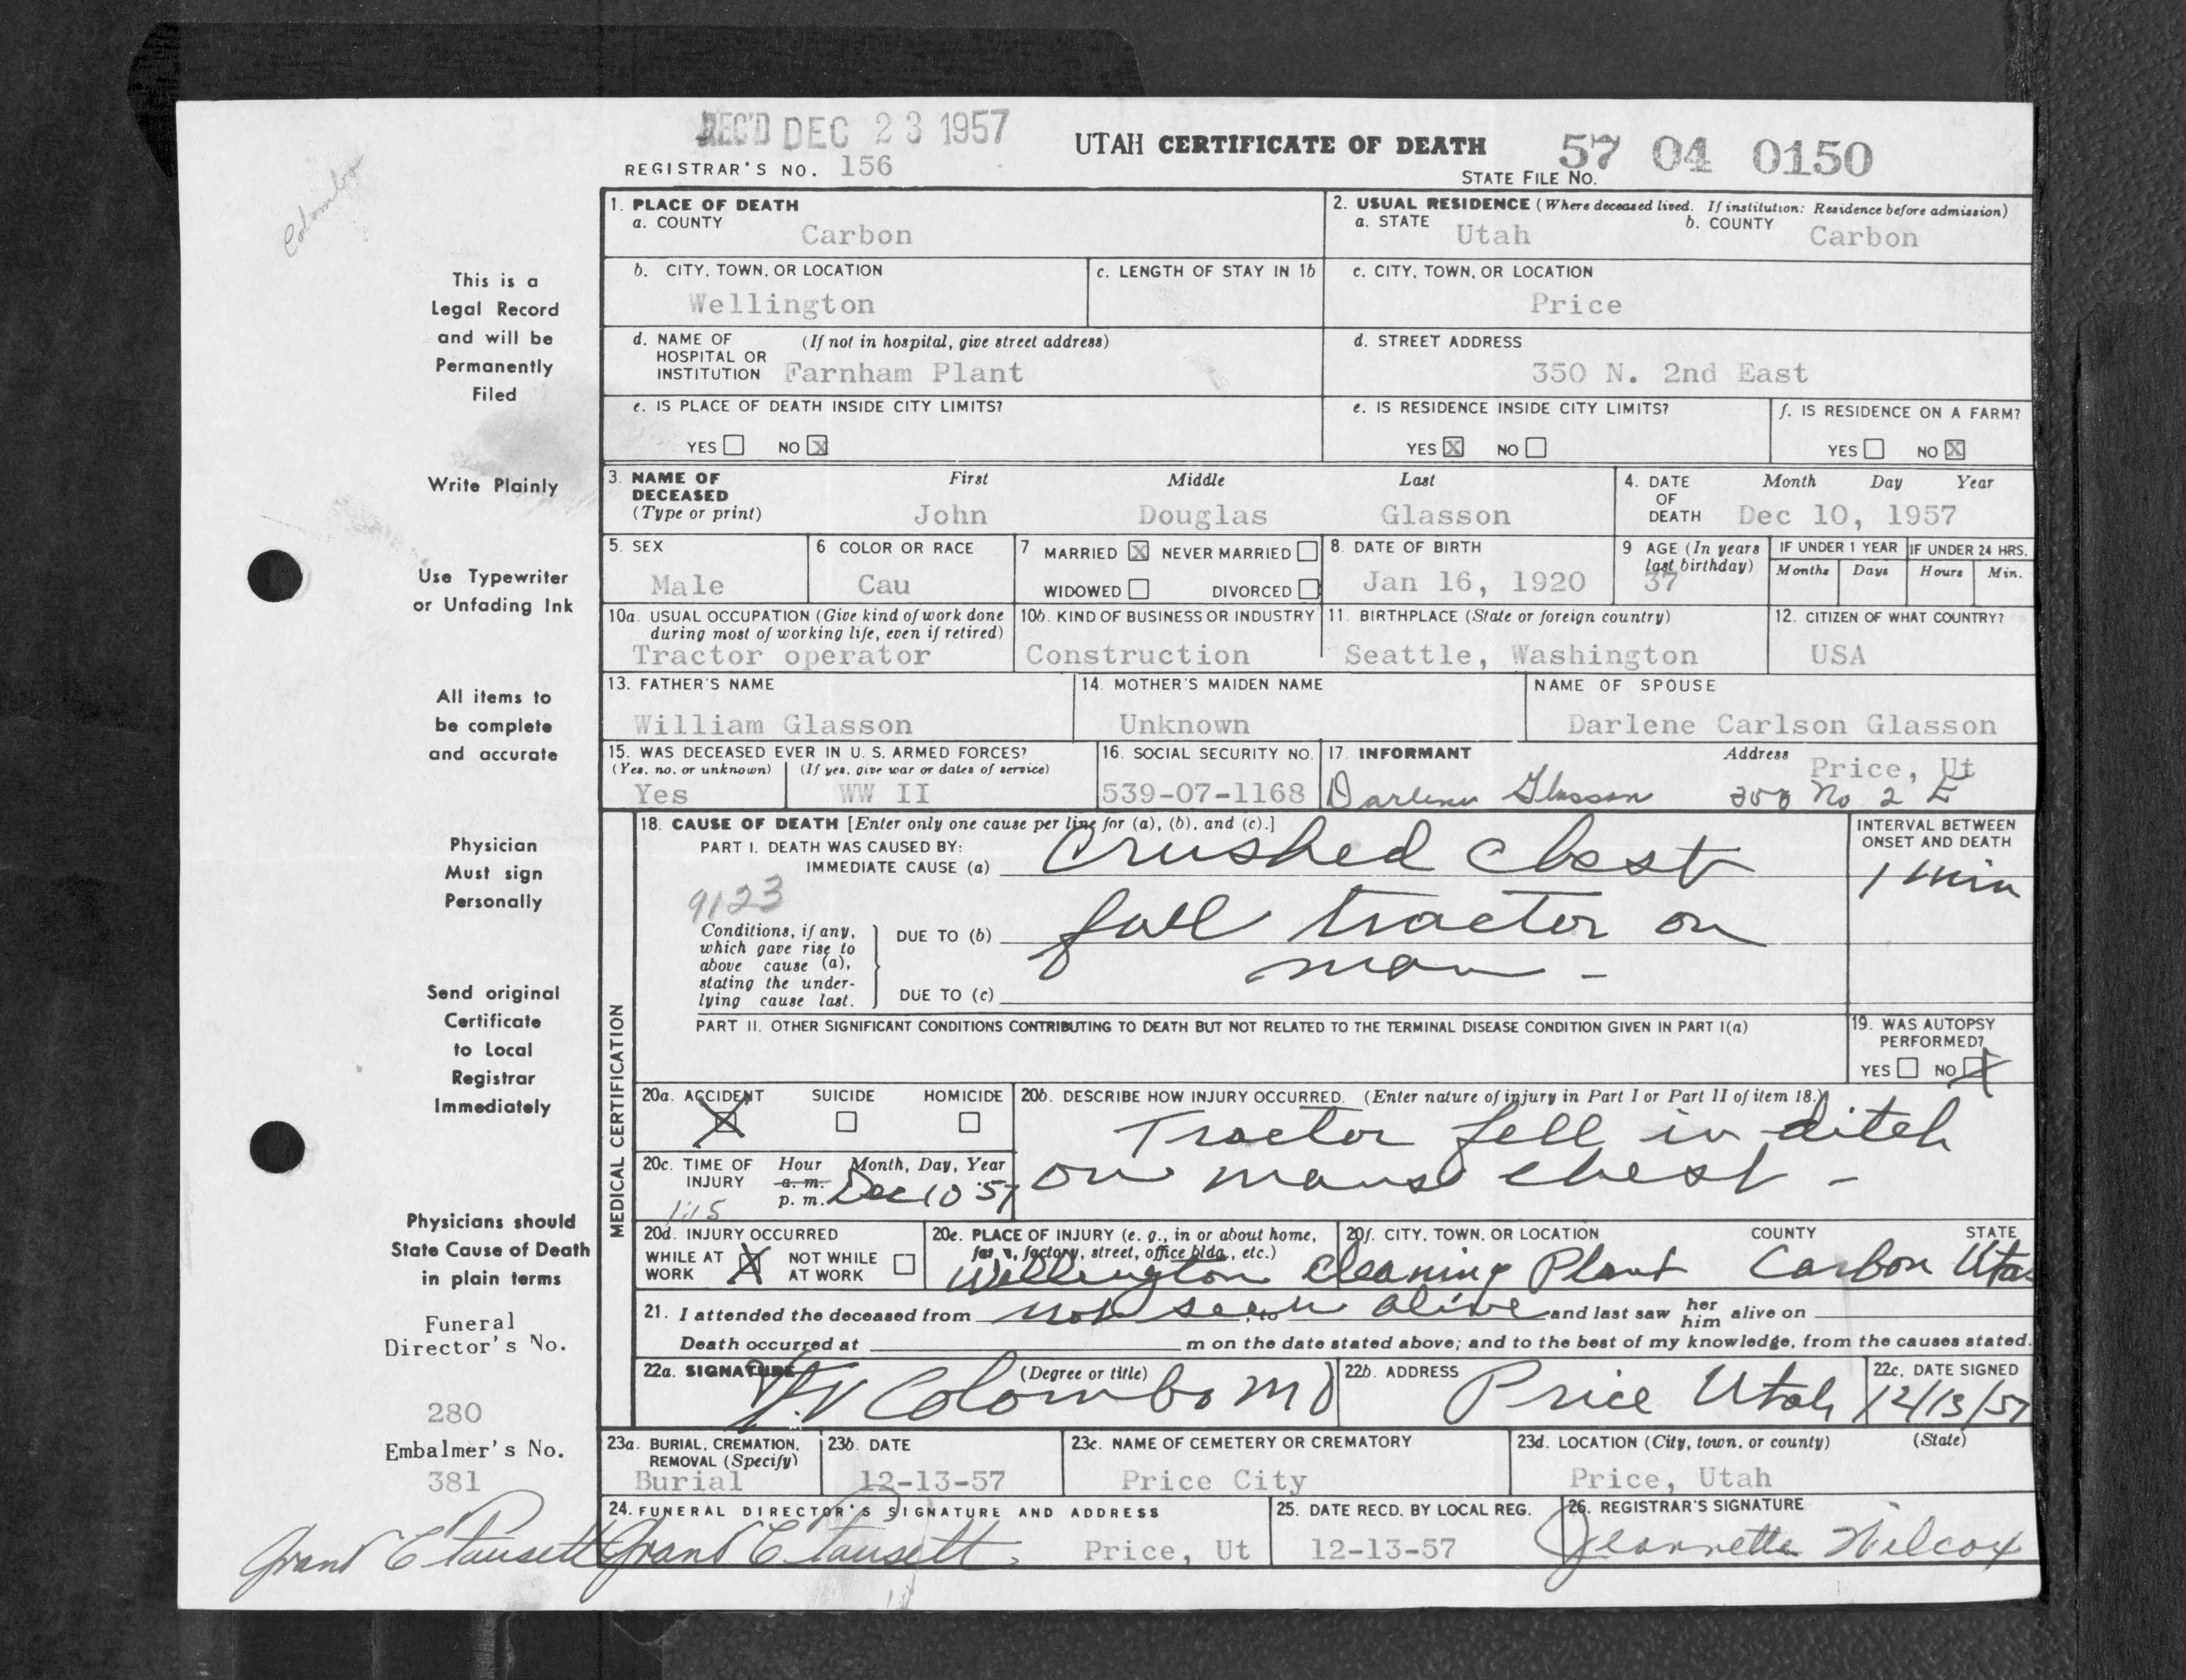 Colombo
REC'D DEC 23 1957
UTAH CERTIFICATE OF DEATH
57 04 0150
REGISTRAR'S NO. 156
STATE FILE NO.
This is a
Legal Record
and will be
Permanently
Filed
Write Plainly
Use Typewriter
or Unfading Ink
All items to
be complete
and accurate
Physician
Must sign
Personally
Send original
Certificate
to Local
Registrar
Immediately
Physicians should
State Cause of Death
in plain terms
Funeral
Director's No.
280
Embalmer's No.
381
1. PLACE OF DEATH
a. COUNTY
Carbon
2. USUAL RESIDENCE (Where deceased lived. If institution: Residence before admission)
a. STATE Utah b. COUNTY Carbon
b. CITY, TOWN, OR LOCATION
Wellington
c. LENGTH OF STAY IN 1b
c. CITY, TOWN, OR LOCATION
Price
d. NAME OF (If not in hospital, give street address)
HOSPITAL OR
INSTITUTION Farnham Plant
d. STREET ADDRESS
350 N. 2nd East
e. IS PLACE OF DEATH INSIDE CITY LIMITS?
YES NO X
e. IS RESIDENCE INSIDE CITY LIMITS?
YES X NO
f. IS RESIDENCE ON A FARM?
YES NO X
3. NAME OF DECEASED (Type or print)
First Middle Last
John Douglas Glasson
4. DATE OF DEATH
Month Day Year
Dec 10, 1957
5. SEX
Male
6 COLOR OR RACE
Cau
7 MARRIED X NEVER MARRIED
WIDOWED DIVORCED
8. DATE OF BIRTH
Jan 16, 1920
9 AGE (In years
last birthday)
37
IF UNDER 1 YEAR
Months Days
IF UNDER 24 HRS.
Hours Min.
10a. USUAL OCCUPATION (Give kind of work done
during most of working life, even if retired)
Tractor operator
10b. KIND OF BUSINESS OR INDUSTRY
Construction
11. BIRTHPLACE (State or foreign country)
Seattle, Washington
12. CITIZEN OF WHAT COUNTRY?
USA
13. FATHER'S NAME
William Glasson
14. MOTHER'S MAIDEN NAME
Unknown
NAME OF SPOUSE
Darlene Carlson Glasson
15. WAS DECEASED EVER IN U. S. ARMED FORCES?
(Yes, no, or unknown) (If yes, give war or dates of service)
Yes WW II
16. SOCIAL SECURITY NO.
539-07-1168
17. INFORMANT Address
Price, Ut
Darlene Glasson 350 No 2 E
MEDICAL CERTIFICATION
18. CAUSE OF DEATH [Enter only one cause per line for (a), (b), and (c).]
PART I. DEATH WAS CAUSED BY:
IMMEDIATE CAUSE (a) Crushed chest
INTERVAL BETWEEN
ONSET AND DEATH
1 min
9123
Conditions, if any,
which gave rise to
above cause (a),
stating the under-
lying cause last.
DUE TO (b) fall tractor on
man -
DUE TO (c)
PART II. OTHER SIGNIFICANT CONDITIONS CONTRIBUTING TO DEATH BUT NOT RELATED TO THE TERMINAL DISEASE CONDITION GIVEN IN PART I(a)
19. WAS AUTOPSY
PERFORMED?
YES NO X
20a. ACCIDENT SUICIDE HOMICIDE
X
20b. DESCRIBE HOW INJURY OCCURRED. (Enter nature of injury in Part I or Part II of item 18.)
Tractor fell in ditch
on mans chest -
20c. TIME OF INJURY
Hour Month, Day, Year
a. m.
p. m. Dec 10 57
1:15
20d. INJURY OCCURRED
WHILE AT WORK X NOT WHILE AT WORK
20e. PLACE OF INJURY (e. g., in or about home,
farm, factory, street, office bldg., etc.)
20f. CITY, TOWN, OR LOCATION COUNTY STATE
Wellington Cleaning Plant Carbon Utah
21. I attended the deceased from not seen alive, to and last saw her him alive on
Death occurred at m on the date stated above; and to the best of my knowledge, from the causes stated.
22a. SIGNATURE (Degree or title)
Colombo MD
22b. ADDRESS
Price Utah
22c. DATE SIGNED
12/13/57
23a. BURIAL, CREMATION,
REMOVAL (Specify)
Burial
23b. DATE
12-13-57
23c. NAME OF CEMETERY OR CREMATORY
Price City
23d. LOCATION (City, town, or county) (State)
Price, Utah
24. FUNERAL DIRECTOR'S SIGNATURE AND ADDRESS
Price, Ut
25. DATE RECD. BY LOCAL REG.
12-13-57
26. REGISTRAR'S SIGNATURE
Jeannette Wilcox